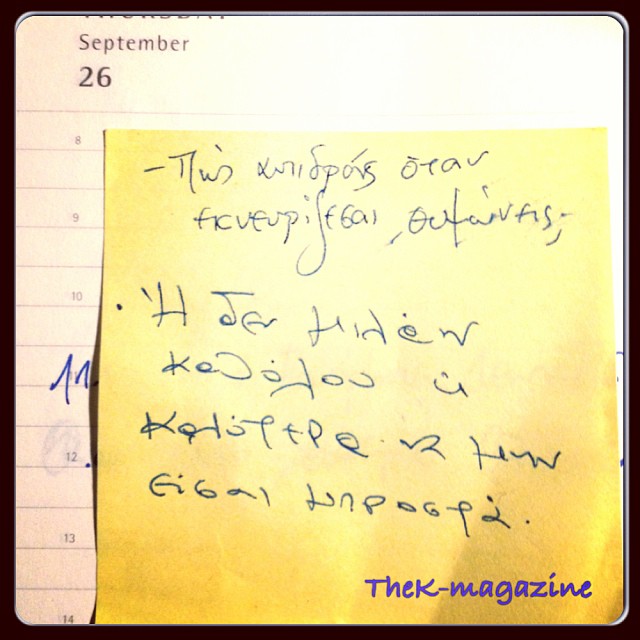 THURSDAY
September
26
8
9
10
11.
12
13
14
- Πώς αντιδράς όταν
εκνευρίζεσαι, θυμώνεις;
. Ή δεν μιλάω
καθόλου ή
καλύτερα να μην
είσαι μπροστά.
TheK-magazine